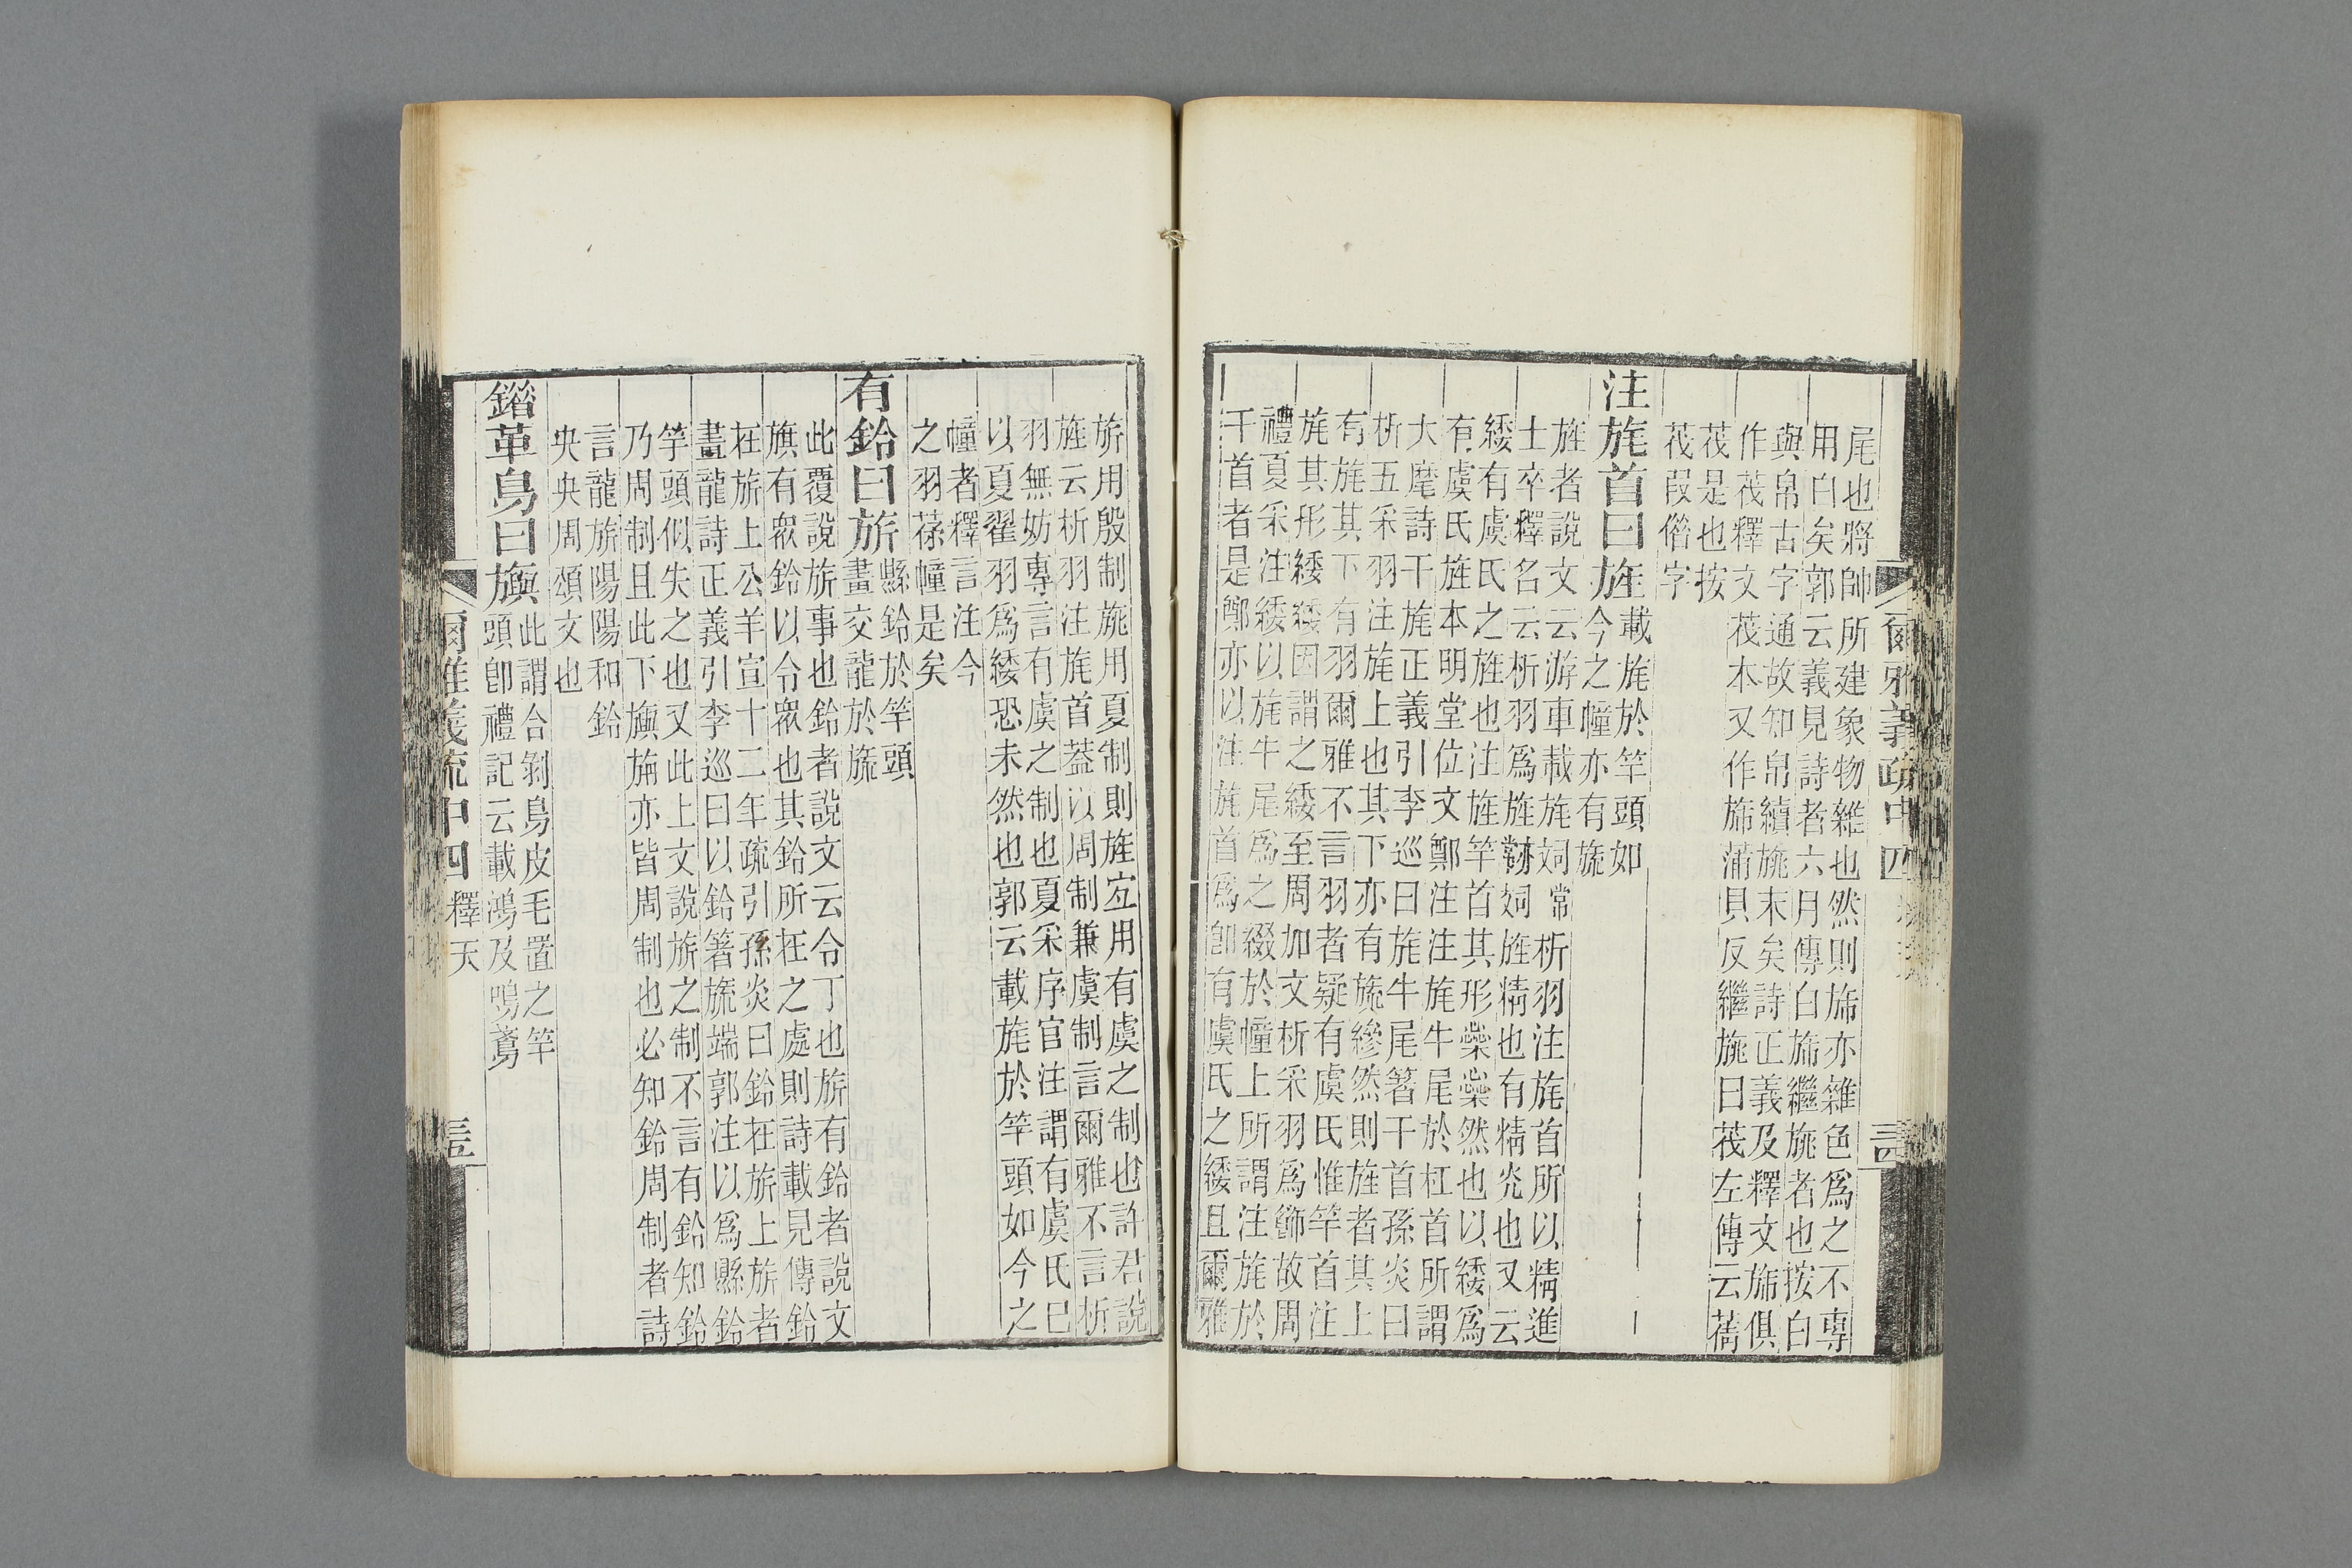 尾也將帥所建象物雜也然則旆亦雜色爲之不專
用白矣郭云義見詩者六月傳白旆繼旐者也按白
與帛古字通故知帛續旐末矣詩正義及釋文旆俱
作茷釋文茷本又作旆蒲貝反繼旐曰茷左傳云蒨
茷是也按
茷叚偕字
注旄首曰旌
載旄於竿頭如
今之幢亦有旒
旌者說文云游車載旄
析羽注旄首所以精進
士卒釋名云析羽爲旌
旌精也有精光也又云
緌有虞氏之旌也注旄竿首其形燊燊然也以緌爲
有虞氏旌本明堂位文鄭注注旄牛尾於杠首所謂
大麾詩干旄正義引李巡曰旄牛尾箸干首孫炎曰
析五采羽注旄上也其下亦有旒縿然則旌者其上
有旄其下有羽爾雅不言羽者疑有虞氏惟竿首注
旄其形緌緌因謂之緌至周加文析采羽爲飾故周
禮夏采注緌以旄牛尾爲之綴於幢上所謂注旄於
干首者是鄭亦以注旄首爲卽有虞氏之緌且爾雅
爾雅義疏中四
旂用殷制旐用夏制則旌定用有虞之制也許君說
旌云析羽注旄首葢以周制兼虞制言爾雅不言析
羽無妨專言有虞之制也夏采序官注謂有虞氏已
以夏翟羽爲緌恐未然也郭云載旄於竿頭如今之
幢者釋言注今
之羽葆幢是矣
有鈴曰旂
縣鈴於竿頭
畫交龍於旒
此覆說旂事也鈴者說文云令丁也旂有鈴者說文
旗有衆鈴以令衆也其鈴所在之處則詩載見傳鈴
在旂上公羊宣十二年疏引孫炎曰鈴在旂上旂者
畫龍詩正義引李巡曰以鈴箸旒端郭注以爲縣鈴
竿頭似失之也又此上文說旂之制不言有鈴知鈴
乃周制且此下旟旃亦皆周制也必知鈴周制者詩
言龍旂陽陽和鈴
央央周頌文也
錯革鳥曰旟
此謂合剝鳥皮毛置之竿
頭卽禮記云載鴻及鳴鳶
爾雅義疏中四 釋天